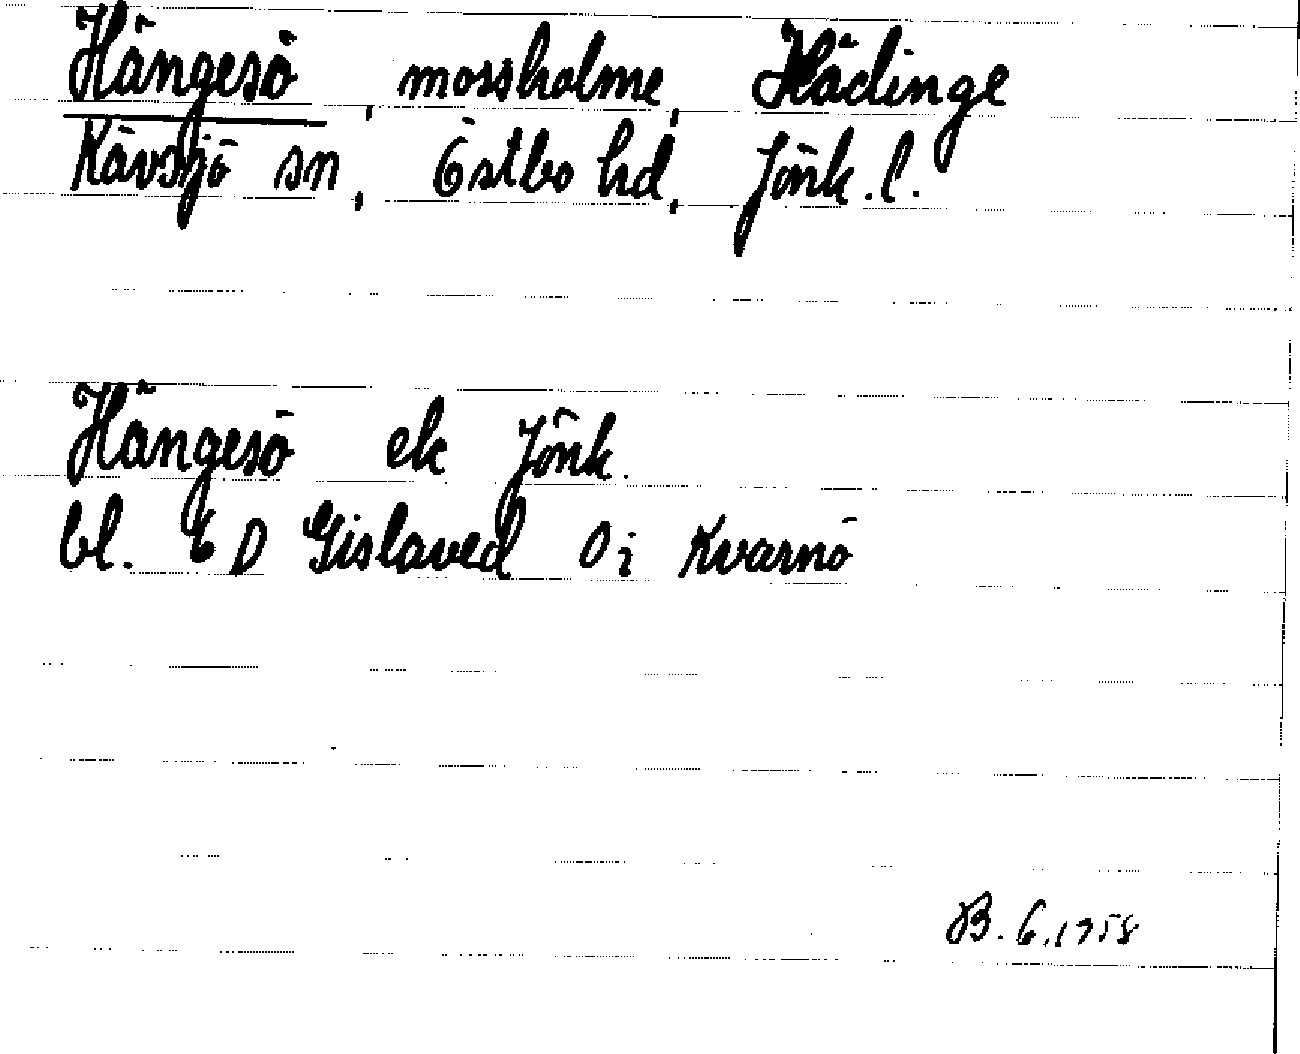 Hängesö, mossholme, Hädinge
Kävsjö sn, Östbo hd, Jönk. l.
Hängesö ek Jönk.
bl. 6 D Gislaved O i Kvarnö
B. 6.1958